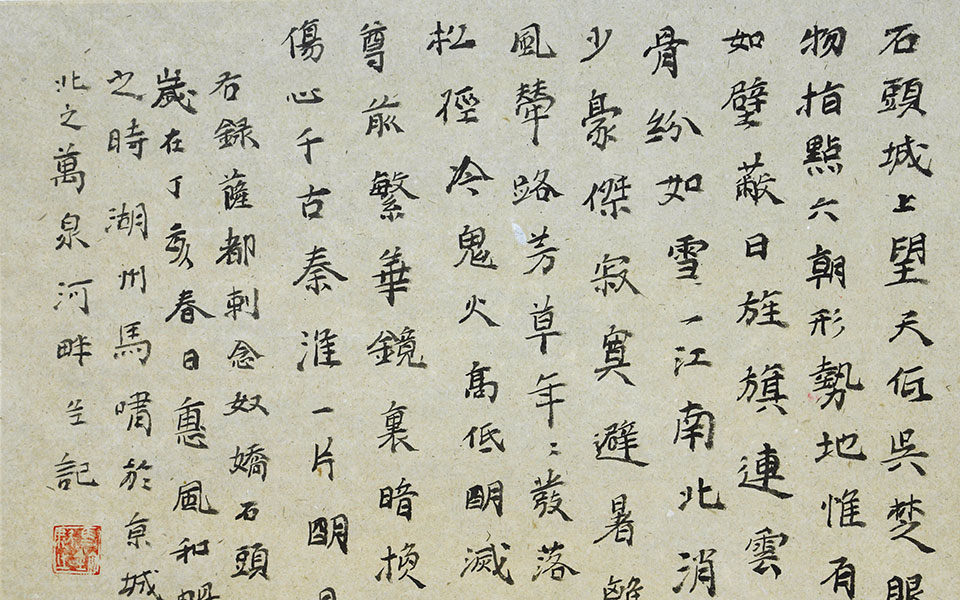 石頭城上望天低吳楚眼
物指點六朝形勢地惟有
如壁蔽日旌旗連雲
骨紛如雪一江南北消
少豪傑寂寞避暑離
風輦路芳草年々發落
松徑冷鬼火高低明滅
尊前繁華鏡裏暗換
傷心千古秦淮一片明
右録薩都剌念奴嬌石頭
歲在丁亥春日惠風和
之時湖州馬嘯於京城
北之萬泉河畔記